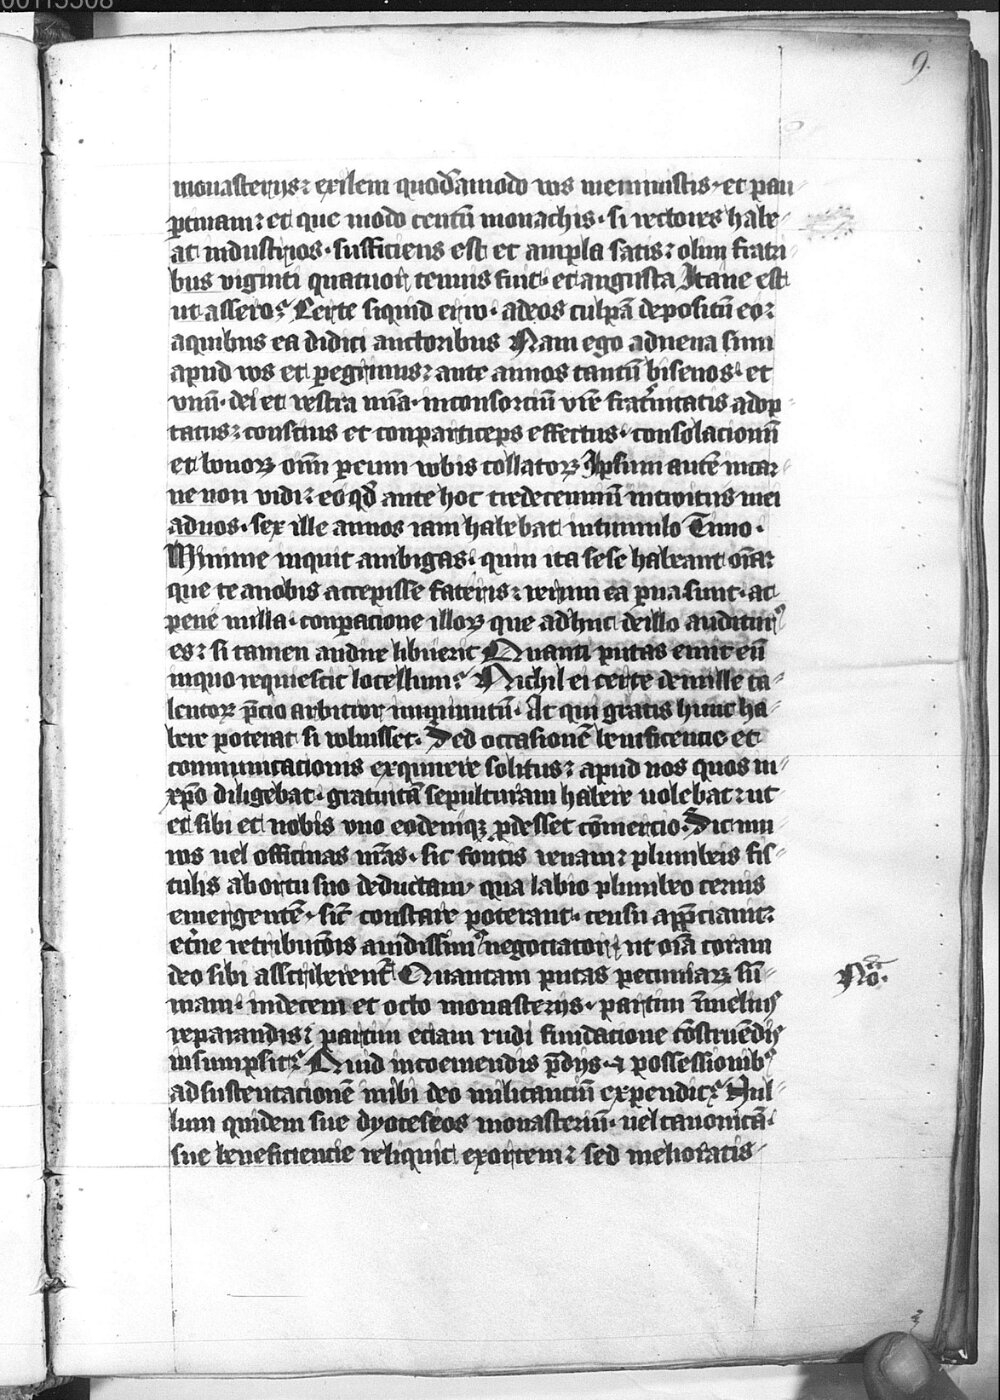 00115508
9.
monasterijs: exilem quodāmodo vos meministis · et pau-
ꝑtinam: et que modo centū monachis · si rectores habe-
at industrios · sufficiens est et ampla satis: olim fratri-
bus viginti quatuor tenuis fuit · et angusta Itane est
ut assero: Certe siquid erro · ad eos culpā depositū eoꝝ
a quibus ea didici auctoribus Nam ego advena sum
apud vos et ꝑegrinus: ante annos tantū bisenos · et
vnū · dei et vestra mīa · in consorciū vrē frat̄nitatis adop-
tatus: conscius et conparticeps effectus · consolacionū
et bonoꝝ om̄ ꝑ eum vobis collatoꝝ Ipsum autē in car-
ne non vidi: eo qd̄ ante hoc tredecennū introitus mei
ad vos · sex ille annos iam habebat in tumulo Timo ·
Minime inquit ambigas · quin ita sese habeant om̄ia:
que te a nobis accepisse fateris: verum ea parua sunt · ac
pene nulla · conꝑacione illoꝝ que adhuc de illo auditur⁹
es: si tamen audire libuerit Quanti putas emit eū
in quo requiescit locellum: Nichil ei certe de mille ta-
lentoꝝ p̄cio arbitror inminutū · At qui gratis hunc ha-
bere poterat si voluisset · Sed occasionē beneficencie et
communicacionis exquirere solitus: apud nos quos in
xp̄o diligebat · gratuitā sepulturam habere nolebat: ut
et sibi et nobis vno eodemqꝫ ꝓdesset cōmercio. Sic mu-
ros vel officinas nr̄as · sic fontis venam: plumbeis fis-
tulis ab ortu suo deductam · qua labio plumbeo cernis
emergentē · sic̄ constare poterant · censu app̄ciauit:
et̄ne retribuc̄ois auidissim⁹ negociator · ut om̄ia coram
deo sibi asscriberent̄ Quantam putas pecuniaꝝ sū-
mam · in decem et octo monasterijs · partim ī melius
reparandis: partim eciam rudi fundacione cōstruēdis
insumpsit: Quid in coemendis p̄dijs · et possessionib⁹
ad sustentacionē inibi deo militantiū expendit: Nul-
lum quidem sue dyoceseos monasteriū · uel canonicā ·
sue beneficiencie reliquit exortem: sed melioratis
No.